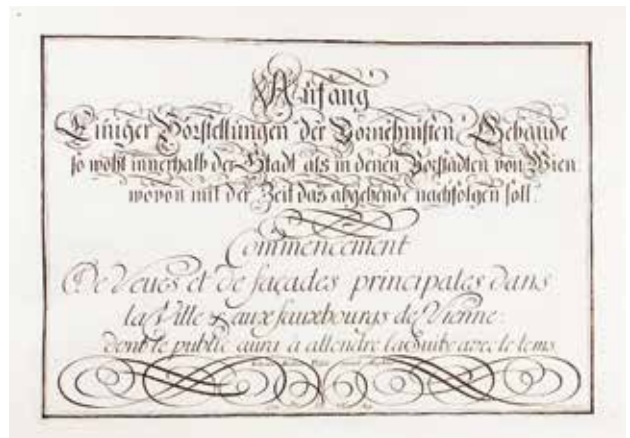 Anfang
Einiger Vorstellungen der Vornehmsten Gebäude
so wohl innerhalb der Stadt als in denen Vorstädten von Wien.
wovon mit der Zeit das abgehende nachfolgen soll.
Commencement
De Veües et de façades principales dans
la Ville & aux fauxbourgs de Vienne:
dont le public aura a attendre la Suite avec le tems.